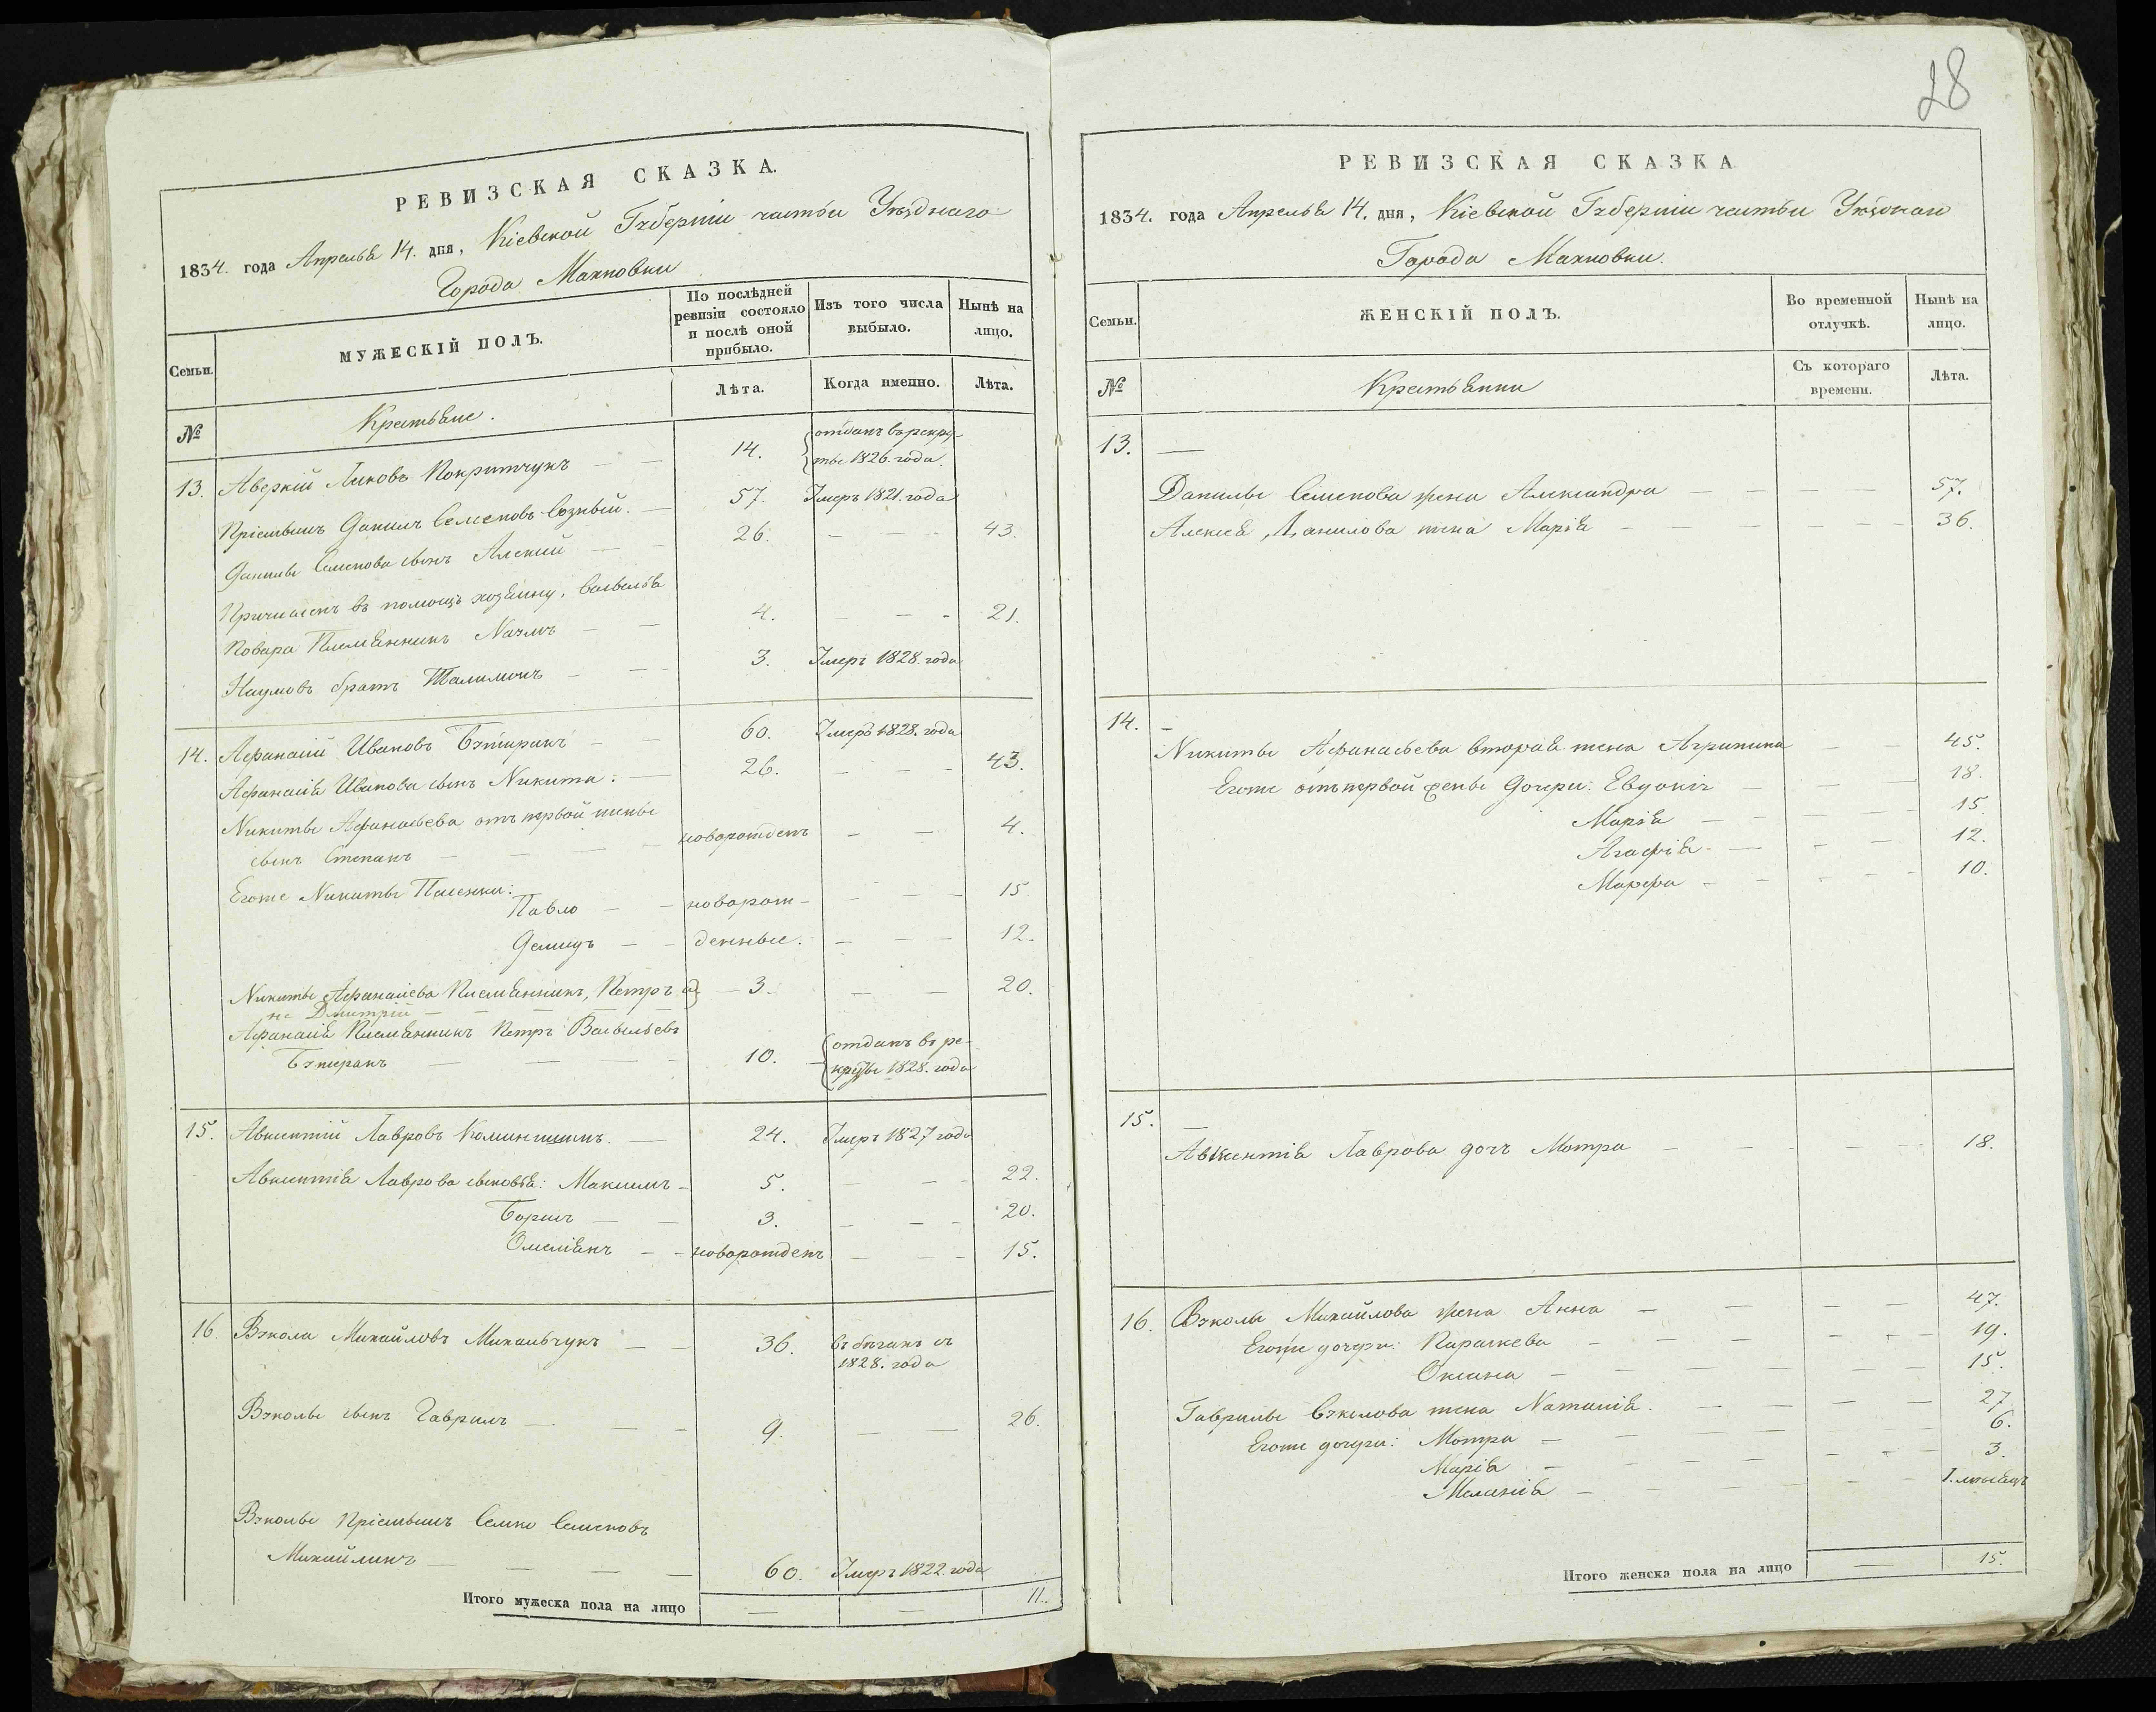 28
РЕВИЗСКАЯ СКАЗКА.
1834. года Апреля 14. дня, Кіевской Губерніи части Уезднаго
Города Махновки
Семьи.
МУЖЕСКІЙ ПОЛЪ.
По послѣдней ревизіи состояло и послѣ оной прибыло.
Изъ того числа выбыло.
Нынѣ на лицо.
№
Крестьяне.
Лѣта.
Когда именно.
Лѣта.
13. Аверкій Покритчукъ — — 14. отданъ въ рекру-
ты 1826. года.
Пріемышъ Данилъ Семеновъ Возный. — 57. Умеръ 1821. года
Данилы Семенова сынъ Алексій — — 26. — — — 43.
Причисленъ въ помощь хозяину, Василья
Повара Племянникъ Наумъ — — 4. — — - 21.
Наумовъ братъ Талимонъ — — - 3. Умеръ 1828. года
14. Афанасій Ивановъ — — 60. Умеръ 1828. года
Афанасія Иванова сынъ Никита. — 26. — — - 43.
Никиты Афанасьева отъ первой жены
сынъ Степанъ — — — — новорожденъ — — 4.
Егоже Никиты Пасенки:
Павло — — новорож- — — — 15
Демидъ — — денные. — — — 12.
Никиты Афанасіева Племянникъ, Петръ а — 3. — — 20.
не Дмитрій — — — — —
Афанасія Племянникъ Петръ Васильевъ
— — — - 10. отданъ въ ре-
круты 1828. года
15. Авксентій Лавровъ — 24. Умеръ 1827 года
Авксентія Лаврова сыновья: Максимъ - 5. — — - 22.
Борисъ — — 3. — — - 20.
Омеліянъ — - новорожденъ — — - 15.
16. Вукола Михайловъ Михальчукъ — — 36. въ бегахъ съ
1828. года
Вуколы сынъ Гаврилъ — — - 9. — — 26.
Вуколы Пріемышъ Семко Семеновъ
Михайлинъ — — — — 60. Умеръ 1822. года
Итого мужеска пола на лицо — — 11.
РЕВИЗСКАЯ СКАЗКА
1834. года Апреля 14. дня, Кіевской Губерніи части
Города Махновки.
Семьи.
ЖЕНСКІЙ ПОЛЪ.
Во временной отлучкѣ.
Нынѣ на лицо.
№
Крестьянки
Съ котораго времени.
Лѣта.
13. —
Данилы Семенова жена Александра — — — — 57.
Алексея Данилова жена Марія — — — - - — 36.
14. —
Никиты Афанасьева вторая жена Агрипина — — 45.
Егоже отъ первой жены дочери: Евдокія — — — 18.
Марія — - — — — 15
Агафія. — - — 12.
Марфа - - - - - 10.
15. —
Авксентія Лаврова дочь Мотра — — - — - 18.
16. Вуколы Михайлова жена Анна — — — — 47.
Егоже дочери: Параскева — — — - - — 19.
Оксана — — — — — — 15.
Гаврилы Вуколова жена Наталія. — — — — 27
Егоже дочери: Мотря — — — — 6.
Марія — — — — — - — 3.
Меланія — — — — — — 1. месяцъ
Итого женска пола на лицо — 15.